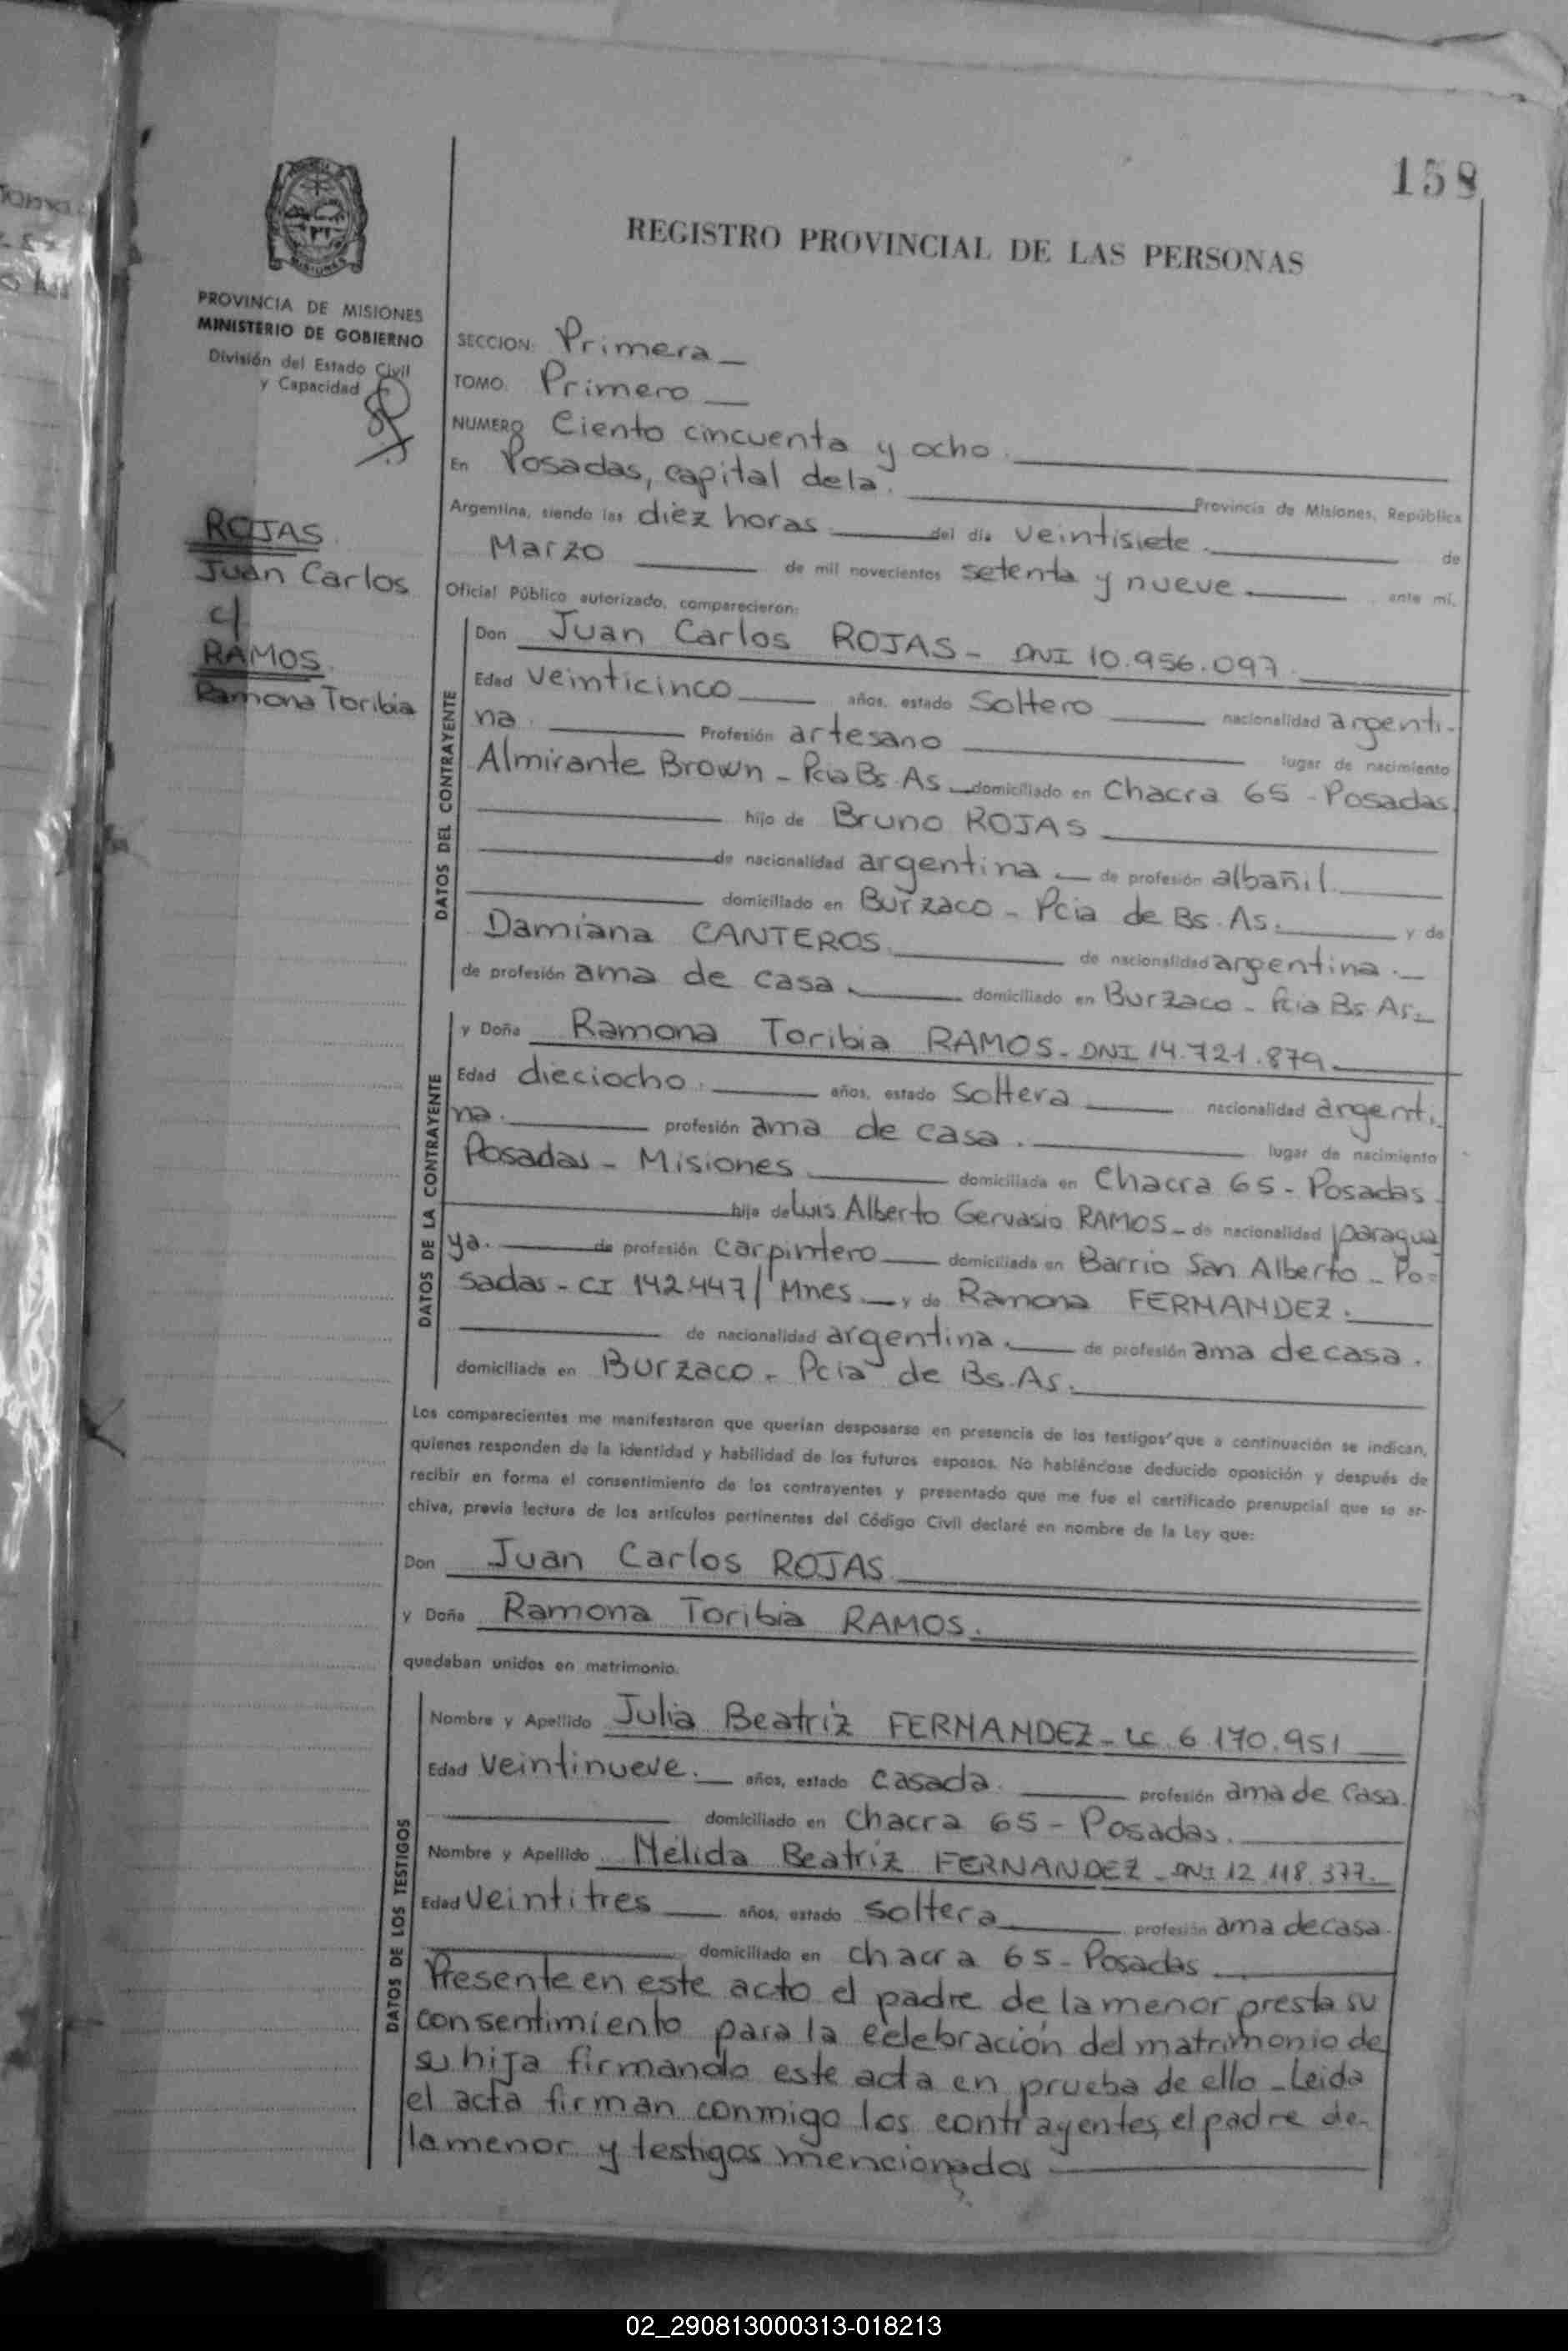 158
REGISTRO PROVINCIAL DE LAS PERSONAS
MISIONES
PROVINCIA DE MISIONES
MINISTERIO DE GOBIERNO
División del Estado Civil
y Capacidad
ROJAS
Juan Carlos
c/
RAMOS
Ramona Toribia
SECCION: Primera
TOMO: Primero
NUMERO Ciento cincuenta y ocho.
En Posadas, capital de la. Provincia de Misiones, República
Argentina, siendo las diez horas del día veintisiete. de
Marzo de mil novecientos setenta y nueve ante mí,
Oficial Público autorizado, comparecieron:
DATOS DEL CONTRAYENTE
Don Juan Carlos ROJAS - DNI 10.956.097.
Edad veinticinco años, estado Soltero nacionalidad argenti-
na. Profesión artesano lugar de nacimiento
Almirante Brown - Pcia Bs. As. domiciliado en Chacra 65 - Posadas.
hijo de Bruno ROJAS
de nacionalidad argentina de profesión albañil
domiciliado en Burzaco - Pcia de Bs. As. y de
Damiana CANTEROS. de nacionalidad argentina.
de profesión ama de casa. domiciliado en Burzaco - Pcia Bs As.
DATOS DE LA CONTRAYENTE
y Doña Ramona Toribia RAMOS - DNI 14.721.879.
Edad dieciocho. años, estado Soltera nacionalidad argenti-
na. profesión ama de casa. lugar de nacimiento
Posadas - Misiones domiciliada en Chacra 65 - Posadas.
hija de Luis Alberto Gervasio RAMOS - de nacionalidad paragua
ya. de profesión carpintero domiciliada en Barrio San Alberto - Po=
sadas - CI 142.447/Mnes. y de Ramona FERNANDEZ.
de nacionalidad argentina. de profesión ama de casa.
domiciliada en Burzaco - Pcia de Bs. As.
Los comparecientes me manifestaron que querían desposarse en presencia de los testigos que a continuación se indican,
quienes responden de la identidad y habilidad de los futuros esposos. No habiéndose deducido oposición y después de
recibir en forma el consentimiento de los contrayentes y presentado que me fue el certificado prenupcial que se ar-
chiva, previa lectura de los artículos pertinentes del Código Civil declaré en nombre de la Ley que:
Don Juan Carlos ROJAS
y Doña Ramona Toribia RAMOS.
quedaban unidos en matrimonio.
DATOS DE LOS TESTIGOS
Nombre y Apellido Julia Beatriz FERNANDEZ - LC. 6.170.951
Edad veintinueve. años, estado casada. profesión ama de casa.
domiciliado en Chacra 65 - Posadas.
Nombre y Apellido Nélida Beatriz FERNANDEZ - DNI 12.118.377.
Edad veintitres años, estado soltera profesión ama de casa.
domiciliado en chacra 65 - Posadas
Presente en este acto el padre de la menor presta su
consentimiento para la celebración del matrimonio de
su hija firmando este acta en prueba de ello - Leida
el acta firman conmigo los contrayentes, el padre de
la menor y testigos mencionados
02_290813000313-018213